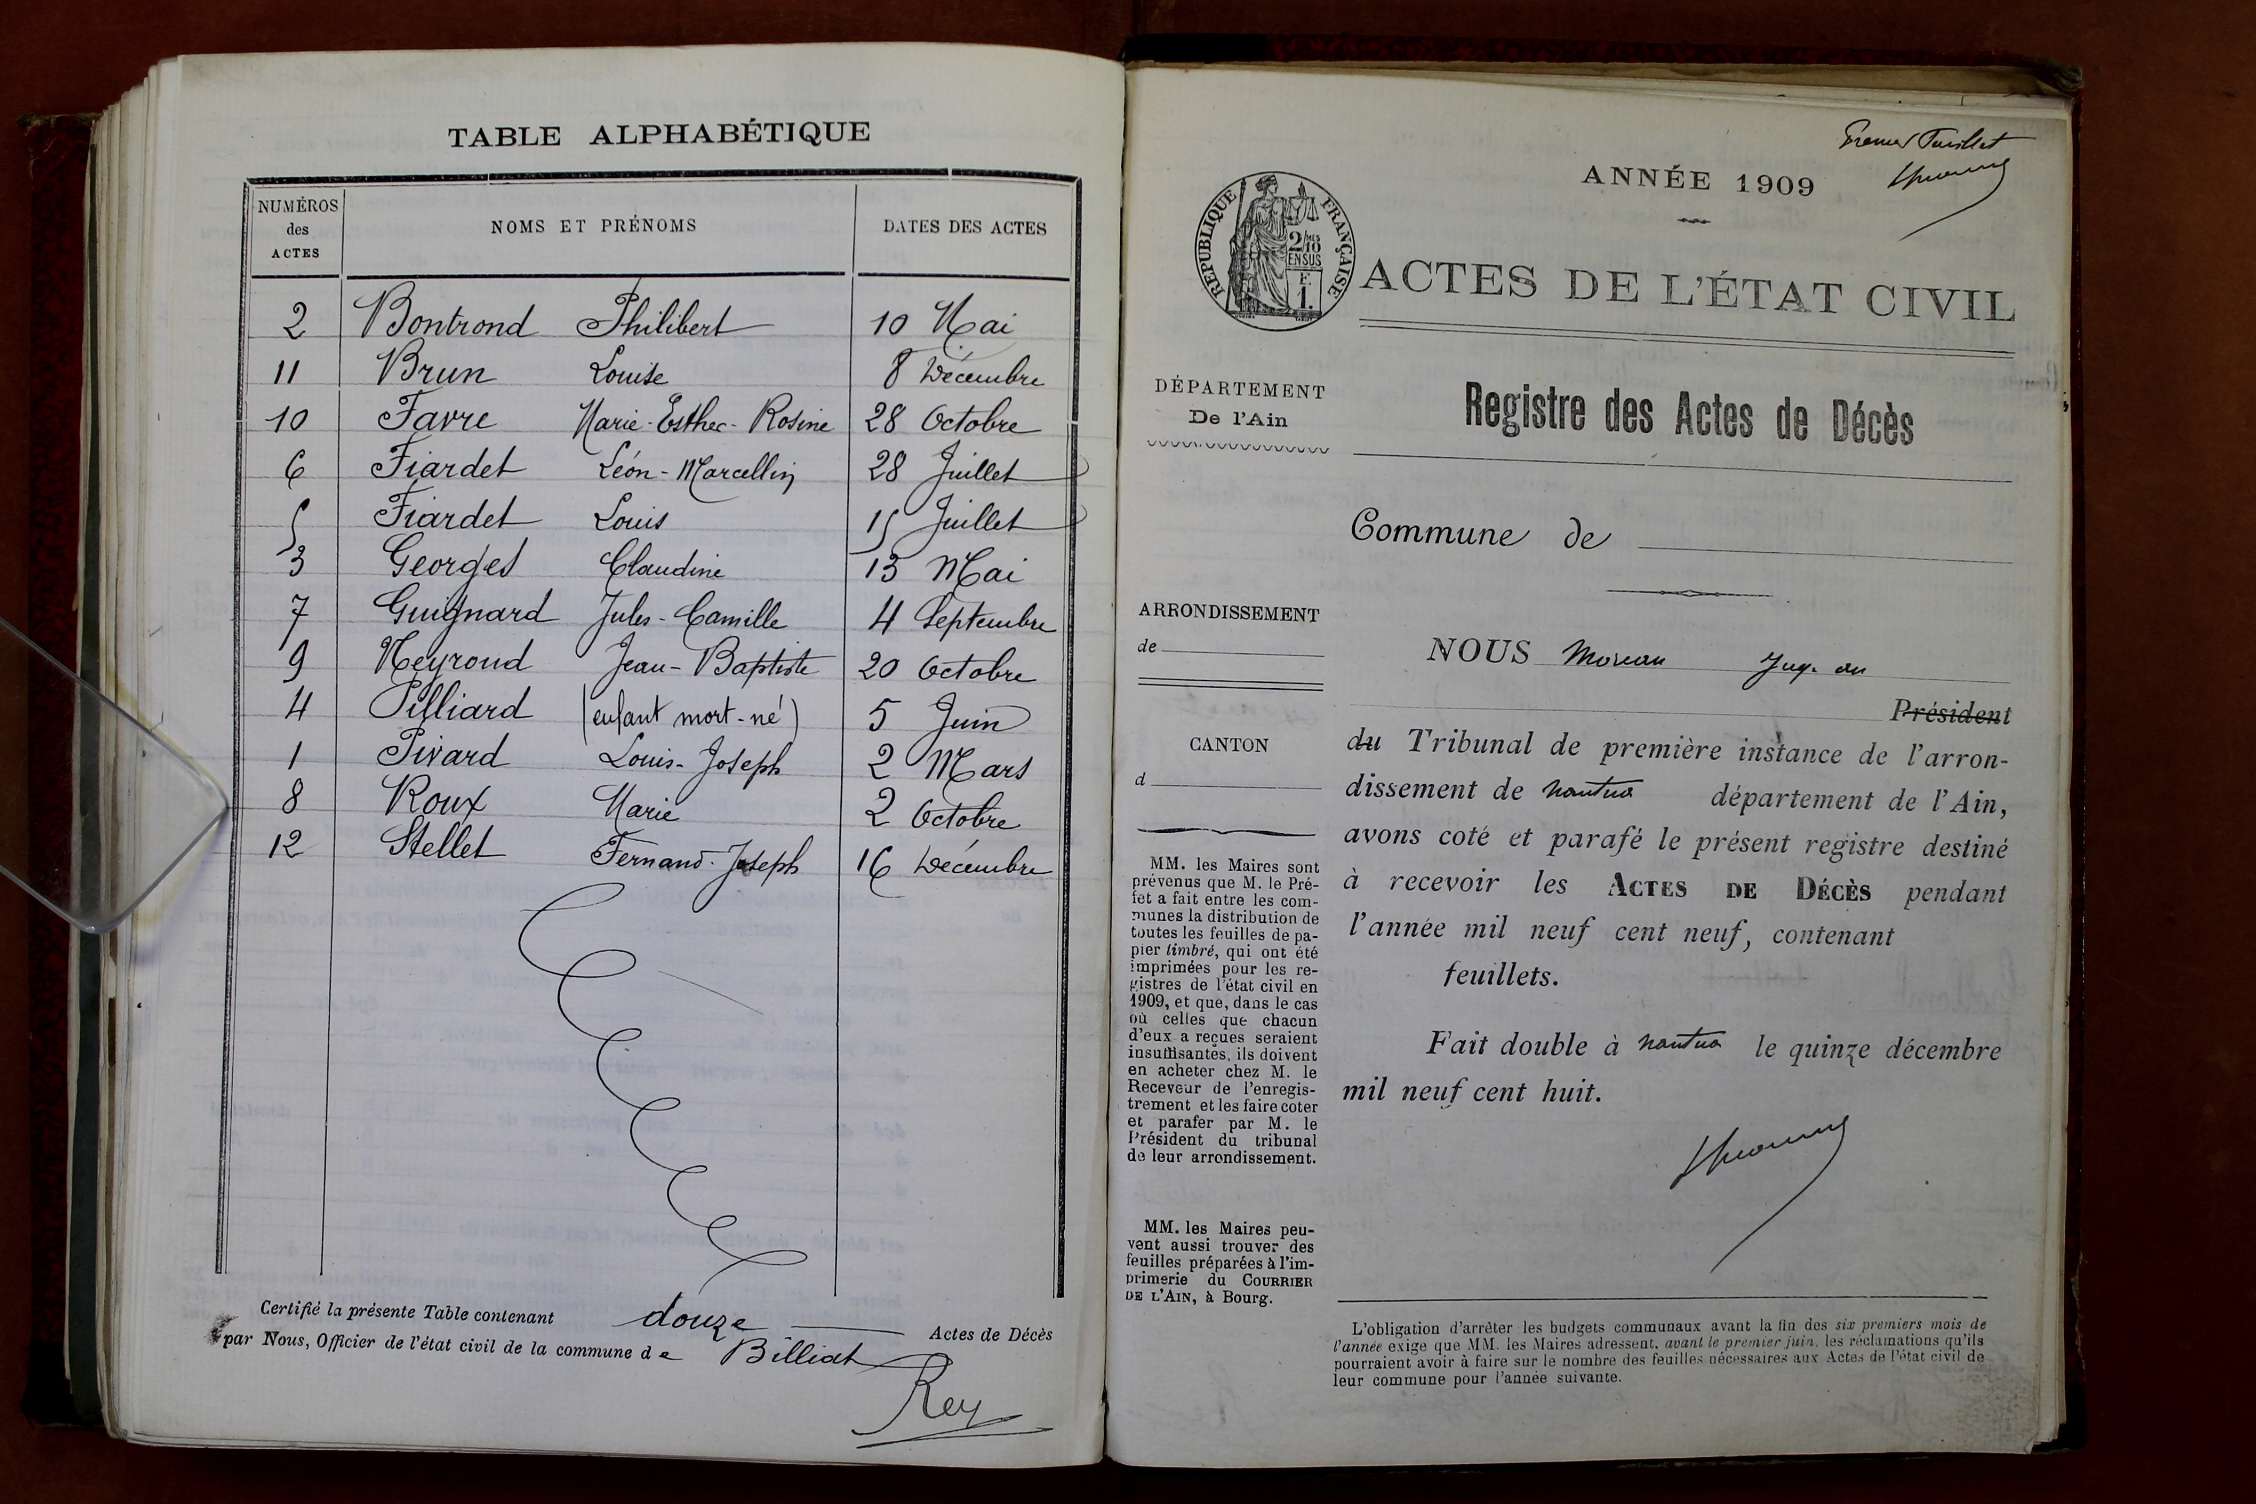 TABLE ALPHABÉTIQUE
NUMÉROS des ACTES NOMS ET PRÉNOMS DATES DES ACTES
2 Bontrond Philibert 10 Mai
11 Brun Louise 8 Décembre
10 Favre Marie-Esther-Rosine 28 Octobre
6 Fiardet Léon-Marcellin 28 Juillet
5 Fiardet Louis 15 Juillet
3 Georges Claudine 13 Mai
7 Guignard Jules-Camille 4 Septembre
9 Neyroud Jean-Baptiste 20 Octobre
4 Pilliard (enfant mort-né) 5 Juin
1 Pivard Louis-Joseph 2 Mars
8 Roux Marie 2 Octobre
12 Stellet Fernand-Joseph 16 Décembre
Certifié la présente Table contenant douze Actes de Décès
par Nous, Officier de l'état civil de la commune de Billiat
Rey
Premier Feuillet
ANNÉE 1909
RÉPUBLIQUE FRANÇAISE
2/10MES
EN SUS
F.
1.
ACTES DE L'ÉTAT CIVIL
DÉPARTEMENT
De l'Ain
Registre des Actes de Décès
Commune de
ARRONDISSEMENT
de
CANTON
d
MM. les Maires sont
prévenus que M. le Pré-
fet a fait entre les com-
munes la distribution de
toutes les feuilles de pa-
pier timbré, qui ont été
imprimées pour les re-
gistres de l'état civil en
1909, et que, dans le cas
où celles que chacun
d'eux a reçues seraient
insuffisantes, ils doivent
en acheter chez M. le
Receveur de l'enregis-
trement et les faire coter
et parafer par M. le
Président du tribunal
de leur arrondissement.
MM. les Maires peu-
vent aussi trouver des
feuilles préparées à l'im-
primerie du COURRIER
DE L'AIN, à Bourg.
NOUS Moreau Juge au
Président
du Tribunal de première instance de l'arron-
dissement de Nantua département de l'Ain,
avons coté et parafé le présent registre destiné
à recevoir les ACTES DE DÉCÈS pendant
l'année mil neuf cent neuf, contenant
feuillets.
Fait double à Nantua le quinze décembre
mil neuf cent huit.
L'obligation d'arrêter les budgets communaux avant la fin des six premiers mois de
l'année exige que MM. les Maires adressent, avant le premier juin, les réclamations qu'ils
pourraient avoir à faire sur le nombre des feuilles nécessaires aux Actes de l'état civil de
leur commune pour l'année suivante.